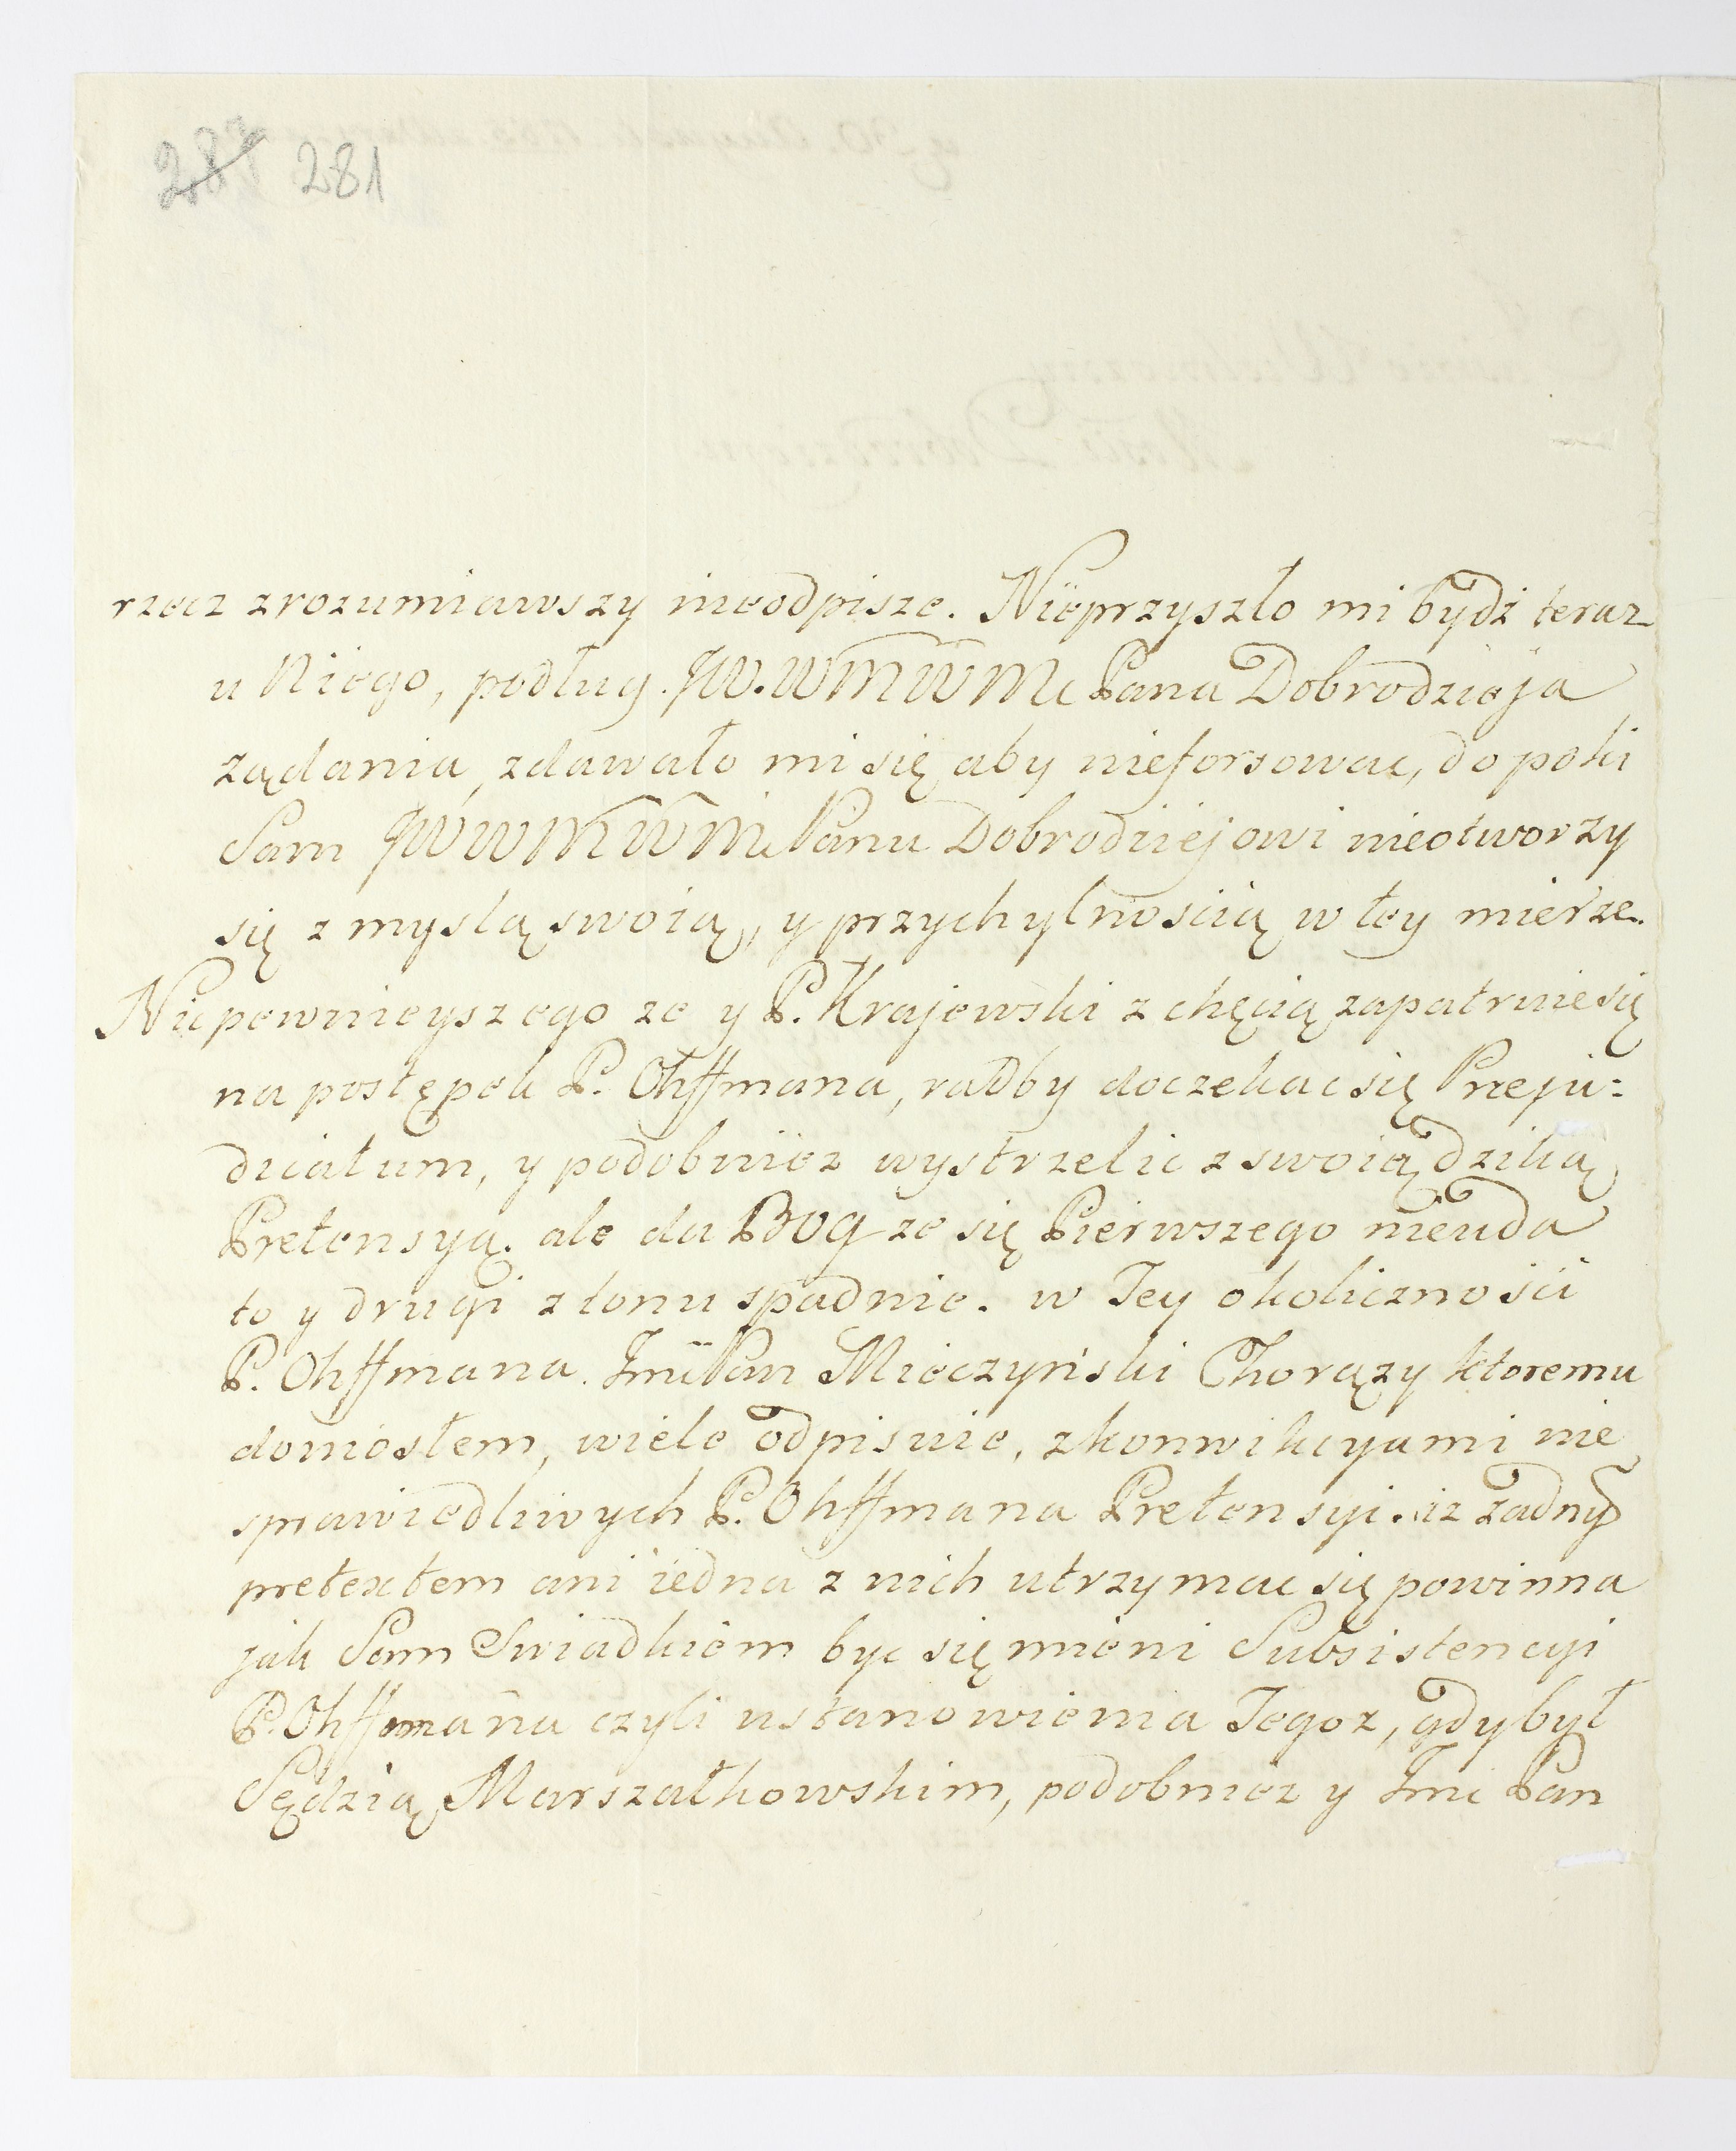 287 281
rzecz zrozumiawszy nieodpisze. Nieprzyszło mi bydź teraz
u Niego, podług. JW. WM WMci Pana Dobrodzieja
ządania, zdawało mi się aby nieforsowac, do poki
Sam JW WM WMci Panu Dobrodziejowi nieotworzy
się z myslą swoią, y przychylnoscią w tey mierze.
Nicpewnieyszego ze y P. Krajewski z chęcią zapatrniesię
na postępek P. Ohffmana, radby doczekac się Preju:
dicatum, y podobniez wystrzelic z swoią dziką
Pretensyą. ale da Bog ze się Pierwszego nieuda
to y drugi z tonu spadnie. w Tey okolicznośći
P. Ohffmana. Jmci Pan Mieczyński Chorąży ktoremu
doniosłem, wiele odpisuie, z konwikcyami nie
sprawiedliwych P. Ohffmana Pretensyi. iz żadnÿ
pretextem ani iedna z nich utrzymac się powinna
jak Sam Swiadkiem byc się mieni Subsistencyi
P. Ohffmana czyli ustanowienia Tegoz, gdy był
Sędzią Marszałkowskim, podobniez y Jmci Pan